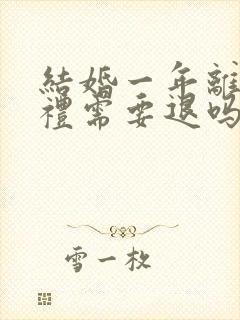 結婚一年離
禮需要退吗
雪一枚